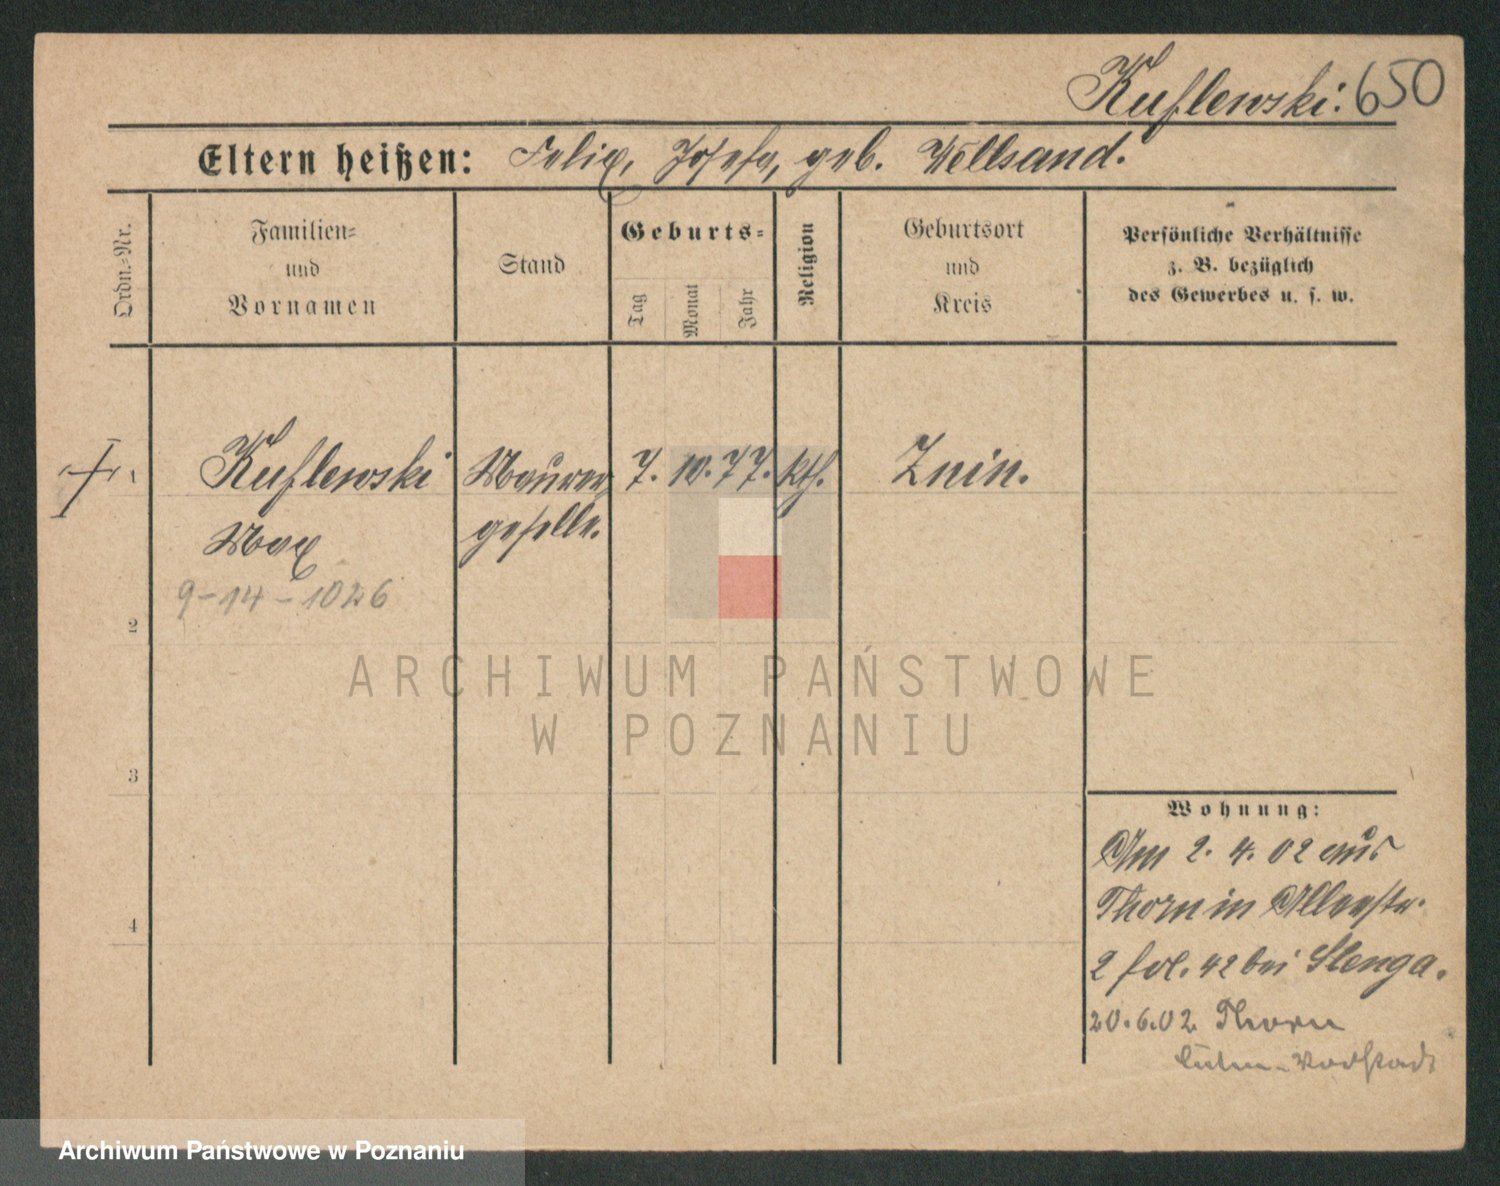 Kuflewski: 650
Eltern heißen: Felix, Josefa, geb. Wellsand.
Ordn.-Nr.
Familien- und Vornamen
Stand
Geburts-
Tag Monat Jahr
Religion
Geburtsort und Kreis
Persönliche Verhältnisse
z. B. bezüglich
des Gewerbes u. s. w.
1 Kuflewski Maurer 7. 10. 77. kth. Znin.
Max geselle.
9-14-1026
2
ARCHIWUM PAŃSTWOWE
W POZNANIU
3
Wohnung:
Am 2. 4. 02 aus
Thorn in Alleestr.
4
2 fol. 42 bei Slenga.
20.6.02 Thorn
Culm-Vorstadt
Archiwum Państwowe w Poznaniu